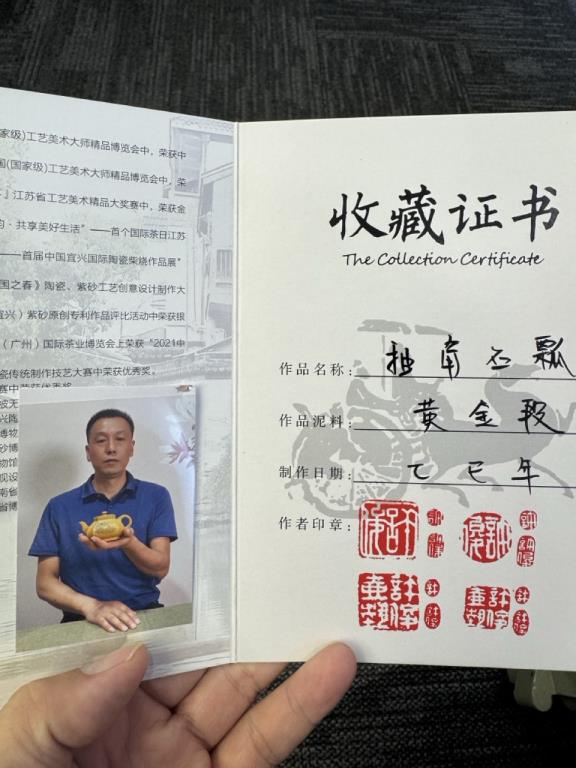 家级)工艺美术大师精品博览会中，荣获中
国(国家级)工艺美术大师精品博览会中，荣
」江苏省工艺美术精品大奖赛中，荣获金
· 共享美好生活”——首个国际茶日江苏
——首届中国宜兴国际陶瓷柴烧作品展”
国之春》陶瓷、紫砂工艺创意设计制作大
兴）紫砂原创专利作品评比活动中荣获银
（广州）国际茶业博览会上荣获“2021中
瓷传统制作技艺大赛中荣获优秀奖。
赛中荣获优秀奖
收藏证书
The Collection Certificate
作品名称：南石瓢
作品泥料：黄金段
制作日期：乙巳年
作者印章：